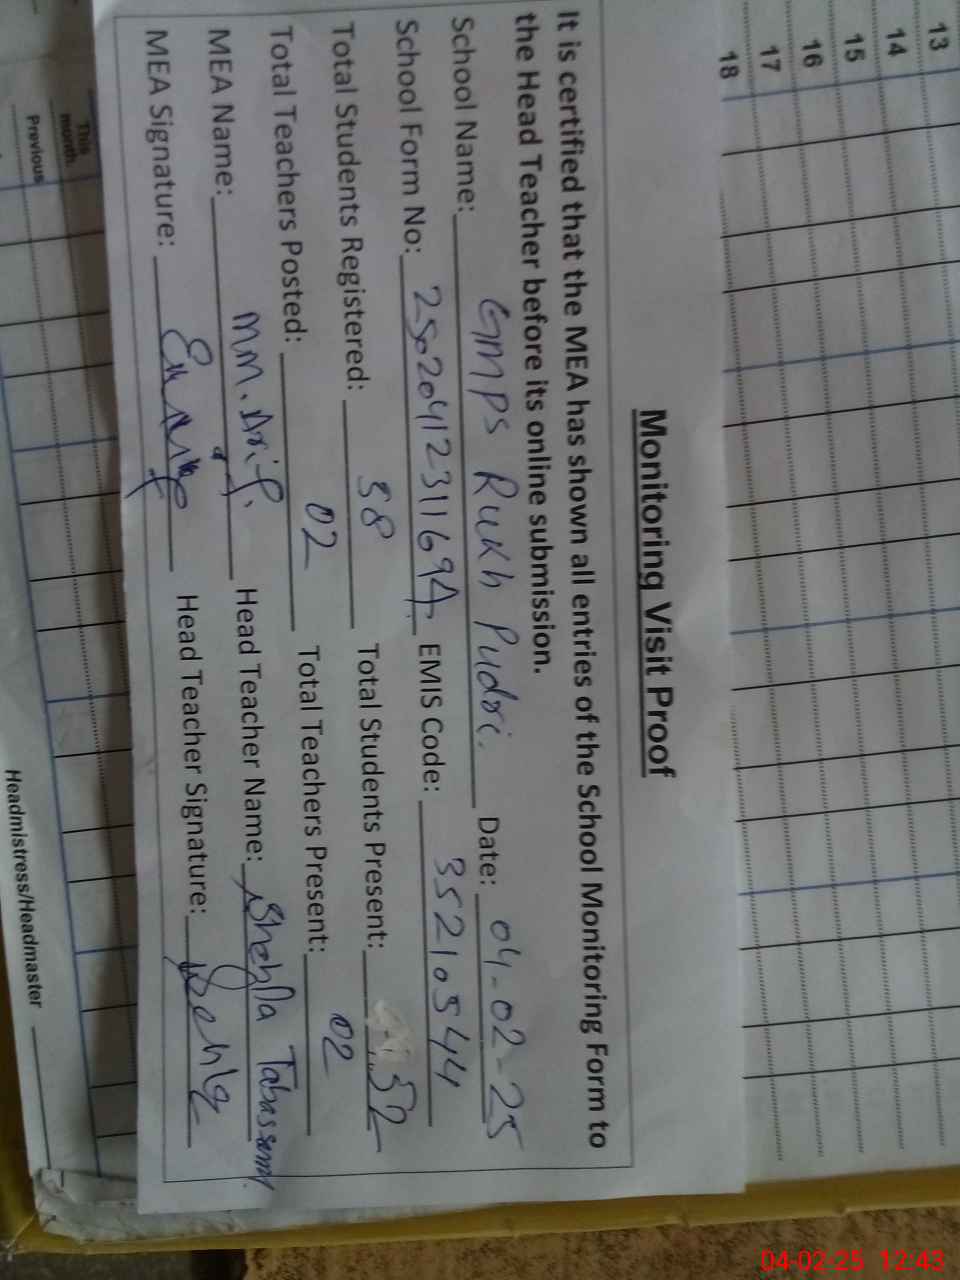 13
14
15
16
17
18
Monitoring Visit Proof
It is certified that the MEA has shown all entries of the School Monitoring Form to
the Head Teacher before its online submission.
School Name: GMPS Rukh Pudri. Date: 04-02-25
School Form No: EMIS Code: 35210544
Total Students Registered: 38 Total Students Present: 32
Total Teachers Posted: 02 Total Teachers Present: 02
MEA Name: M.M. Arif. Head Teacher Name: Shehla Tabassum.
MEA Signature: Head Teacher Signature: Shehla
This
month
Previous
Headmistress/Headmaster
04-02-25 12:43